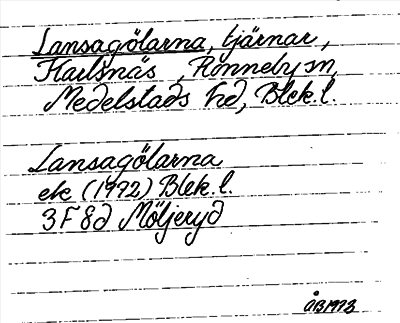 Lansagölarna, tjärnar,
Karlsnäs, Ronneby sn,
Medelstads hd, Blek. l.
Lansagölarna
ek (1972) Blek. l.
3F 8d Möljeryd
ÅB 1973